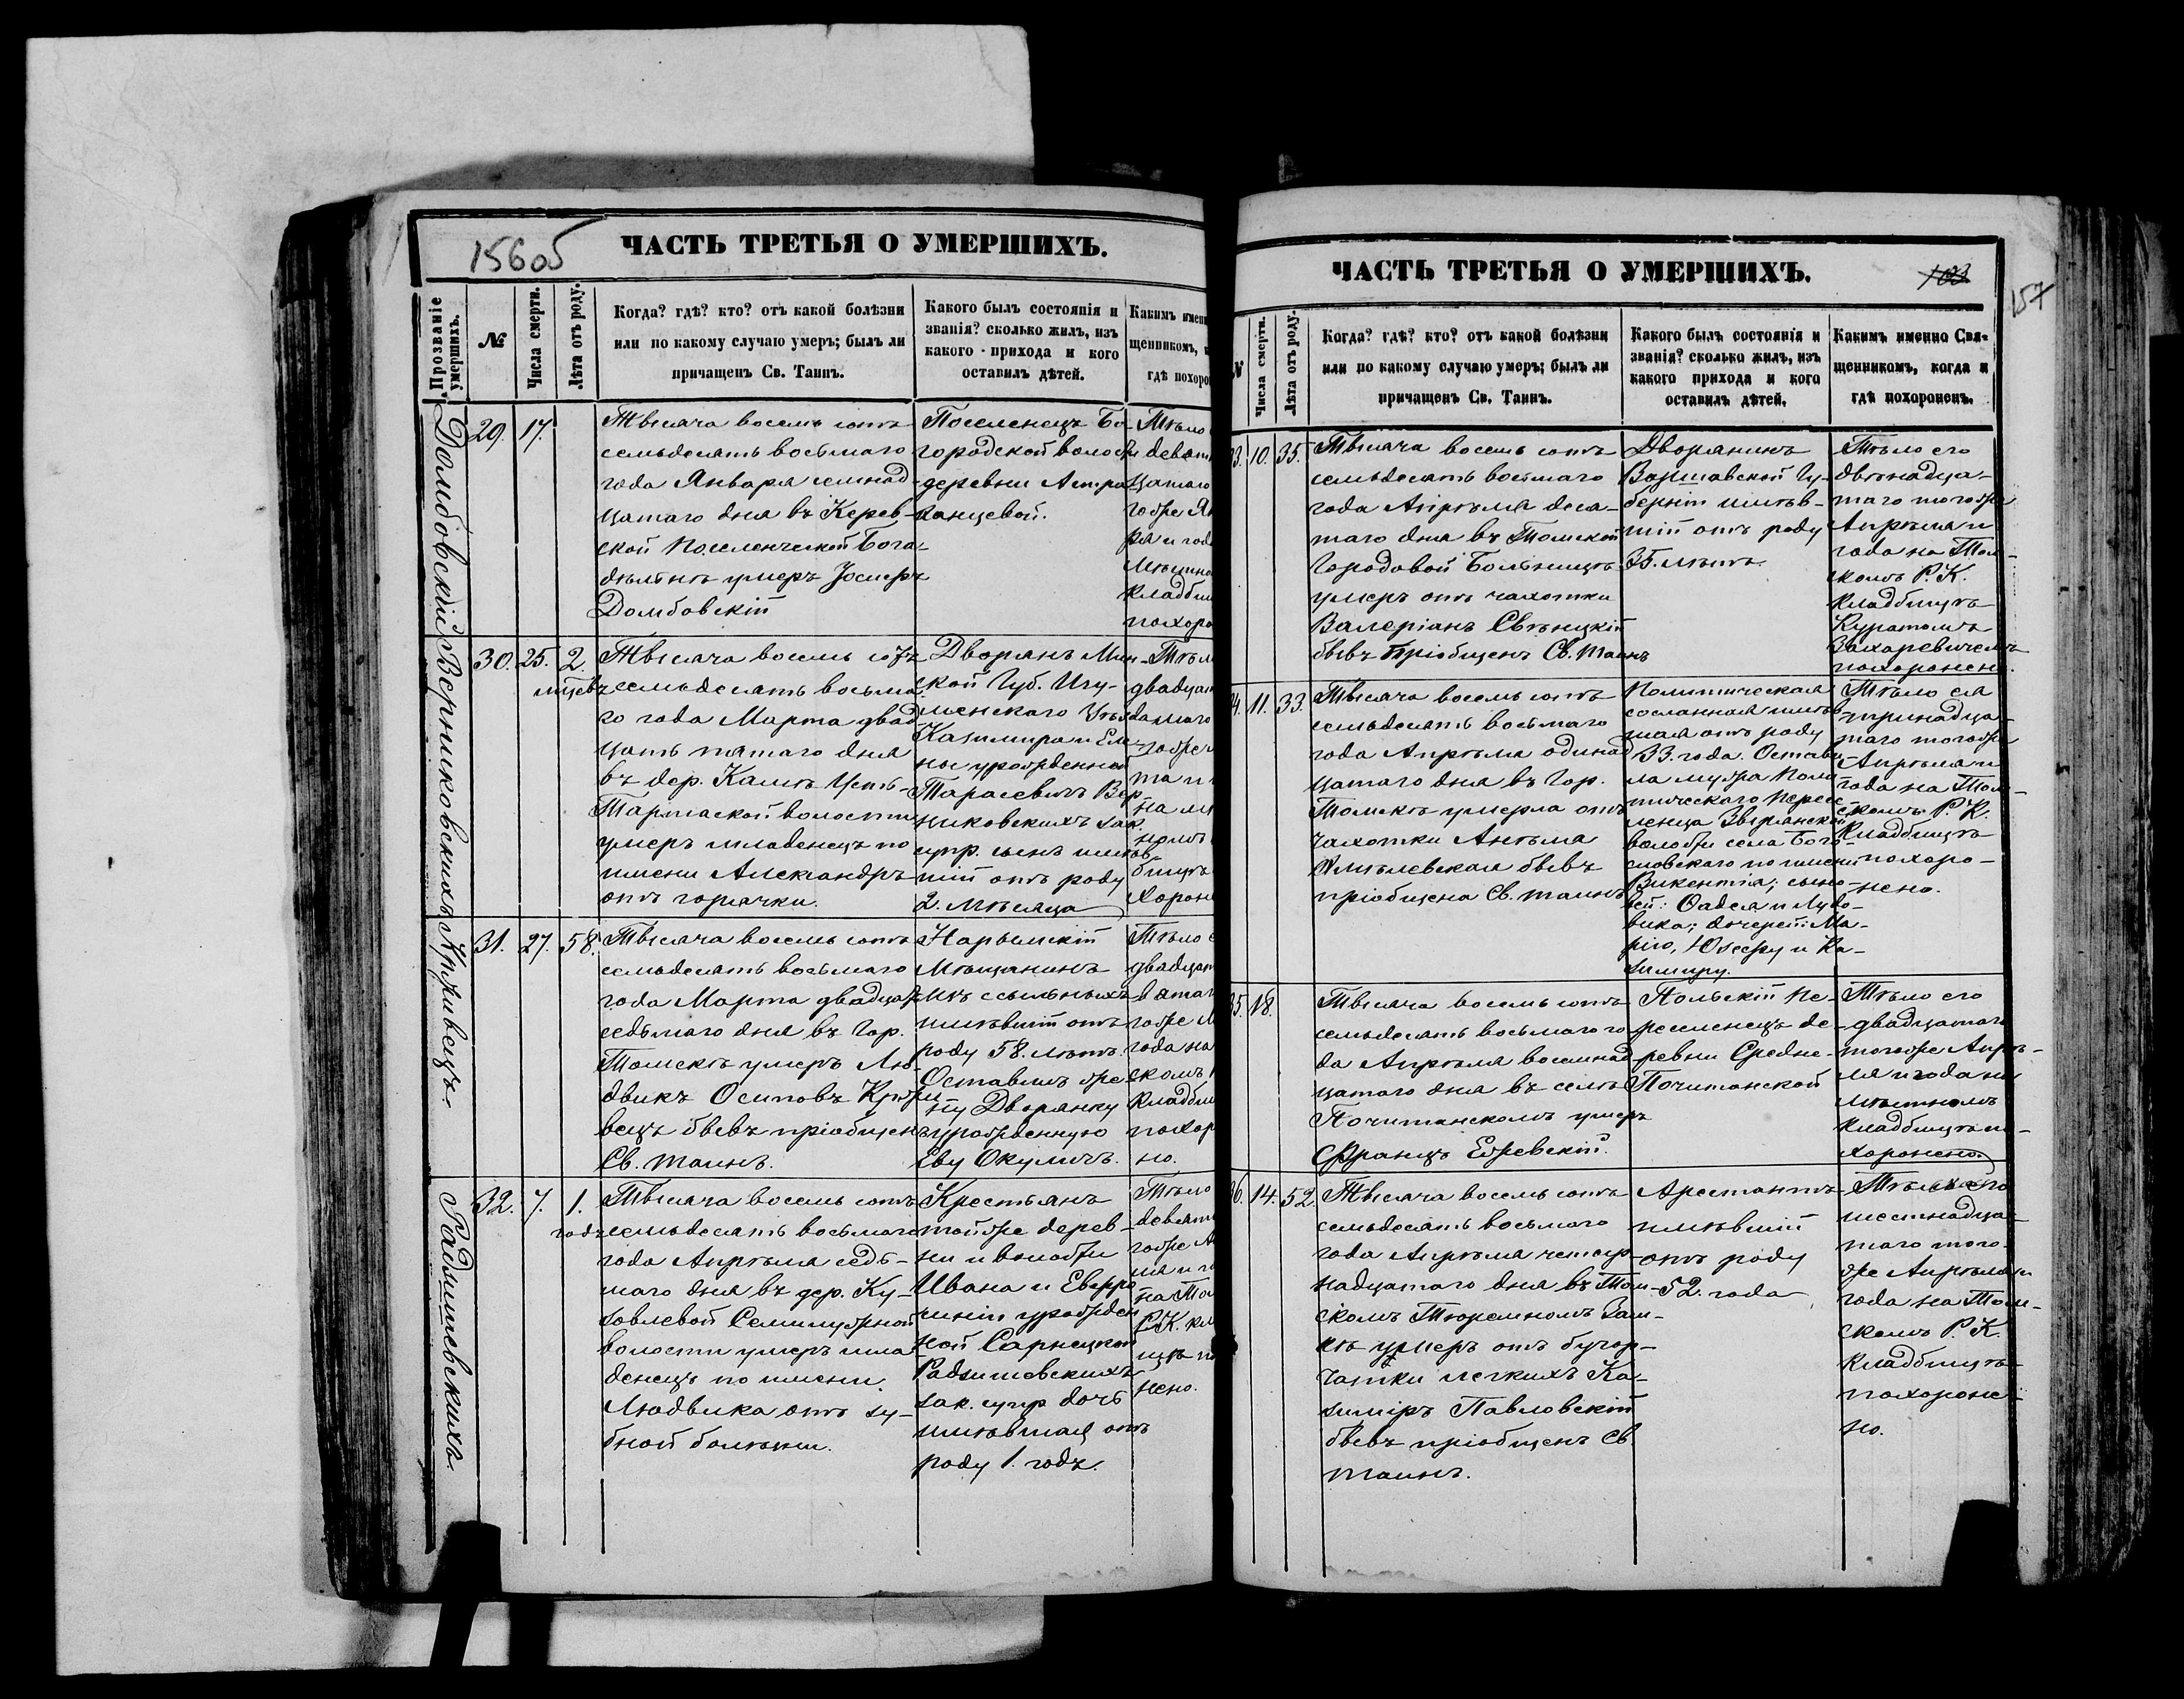 156об
ЧАСТЬ ТРЕТЬЯ О УМЕРШИХЪ.
Прозваніе умершихъ.
№
Числа смерти.
Лѣта отъ роду.
Когда? гдѣ? кто? отъ какой болѣзни
или по какому случаю умеръ; былъ ли
причащенъ Св. Таинъ.
Какого былъ состоянія и
званія? сколько жилъ, изъ
какого прихода и кого
оставилъ дѣтей.
Какимъ имен
щенникомъ,
гдѣ похоро
Домбовскій
29. 17.
Тысяча восемь сотъ
семьдесятъ восьмаго
года Января семнад-
цатаго дня въ Керев-
ской Поселенческой Бога-
дѣльнѣ умеръ Іосифъ
Домбовскій
Поселенецъ Бо-
городской волости
деревни Астра-
ханцевой.
Тѣло
девят
цатаго
гоже Ян
ря и года
Мѣстно
кладби
похоро
Верниковскихъ
30. 25. 2.
мѣсецъ
Тысяча восемь сотъ
семьдесятъ восьма-
го года Марта двад-
цать пятаго дня
въ дер. Камнѣ Усть-
Тартаской волости
умеръ младенецъ по
имени Александръ
отъ горячки.
Дворянъ Мин-
ской Губ. Игу-
менскаго Уѣзда
Казимира и Еле-
ны урожденной
Тарасевичъ Вер-
никовскихъ зак.
супр. сынъ имѣв-
шій отъ роду
2. мѣсяца
Тѣл
двадцат
маго
гоже
та и
на м
номъ
бищѣ
хорон
Кривецъ.
31. 27. 58.
Тысяча восемь сотъ
семьдесятъ восьмаго
года Марта двадцать
седьмаго дня въ Гор.
Томскѣ умеръ Лю-
двикъ Осиповъ Криви-
вецъ бывъ пріобщенъ
Св. таинъ.
Нарымскій
Мѣщанинъ
изъ ссыльныхъ
имѣвшій отъ
роду 58. лѣтъ.
Оставилъ же-
ну Дворянку
урожденную
Еву Окуличъ.
Тѣло
двадцат
вятаг
гоже М
года на
скомъ
кладби
похор
но.
Радзишевскихъ.
32. 7. 1.
годъ
Тысяча восемь сотъ
семьдесятъ восьмаго
года Апрѣля седь-
маго дня въ дер. Ку-
Семилужной
волости умеръ мла-
денецъ по имени
Людвика отъ зу-
бной болѣзни.
Крестьянъ
тойже дерев-
ни и волости
Ивана и Евфро-
зиніи урожден-
ной Сарнецкой
Радзишевскихъ
зак. супр дочь
имѣвшая отъ
роду 1. годъ.
Тѣло
девят
гоже А
ля и го
на То
Р.К. кл
щѣ по
нено.
ЧАСТЬ ТРЕТЬЯ О УМЕРШИХЪ.
157
№
Числа смерти.
Лѣта отъ роду.
Когда? гдѣ? кто? отъ какой болѣзни
или по какому случаю умеръ; былъ ли
причащенъ Св. Таинъ.
Какого былъ состоянія и
званія? сколько жилъ, изъ
какого прихода и кого
оставилъ дѣтей.
Какимъ именно Свя-
щенникомъ, когда и
гдѣ похороненъ.
3. 10. 35.
Тысяча восемь сотъ
семьдесятъ восьмаго
года Апрѣля деся-
таго дня въ Томской
Городовой Больницѣ
умеръ отъ чахотки
Валеріанъ Свѣнцкій
бывъ пріобщенъ Св. таинъ
Дворянинъ
Варшавской Гу-
берніи имѣв-
шій отъ роду
35. лѣтъ.
Тѣло его
двѣнадца-
таго тогоже
Апрѣля и
года на Том-
скомъ Р. К.
кладбищѣ
Куратомъ
Захаревичемъ
похоронено.
4. 11. 33.
Тысяча восемь сотъ
семьдесятъ восьмаго
года Апрѣля одинад-
цатаго дня въ Гор.
Томскѣ умерла отъ
чахотки Анѣля
Хмѣлевская бывъ
пріобщена Св. таинъ
Политическая
сосланная имѣв-
шая отъ роду
33. года. Остави-
ла мужа поли-
тическаго пересе-
ленца
волости села Бого-
словскаго по имени
Викентія; сыно-
вей: Фадея и Людо-
вика; дочерей: Ма-
рію, Юзефу и Ка-
зимиру.
Тѣло ея
тринадца-
таго тогоже
Апрѣля и
года на Том-
скомъ Р. К.
кладбищѣ
похоро-
нено.
35. 18.
Тысяча восемь сотъ
семьдесятъ восьмаго го-
да Апрѣля восемнад-
цатаго дня въ селѣ
Почитанскомъ умеръ
Францъ
Польскій пе-
реселенецъ де-
ревни Средне-
Почитанской
Тѣло его
двадцатаго
тогоже Апрѣ-
ля и года на
мѣстномъ
кладбищѣ по-
хоронено.
36. 14. 52.
Тысяча восемь сотъ
семьдесятъ восьмаго
года Апрѣля четыр-
надцатаго дня въ Том-
скомъ Тюремномъ Зам-
кѣ умеръ отъ бугор-
чатки легкихъ Ка-
зиміръ Павловскій
бывъ пріобщенъ Св.
таинъ.
Арестантъ
имѣвшій
отъ роду
52. года
Тѣло его
шестнадца-
таго того-
же Апрѣля и
года на Том-
скомъ Р. К.
кладбищѣ
похороне-
но.